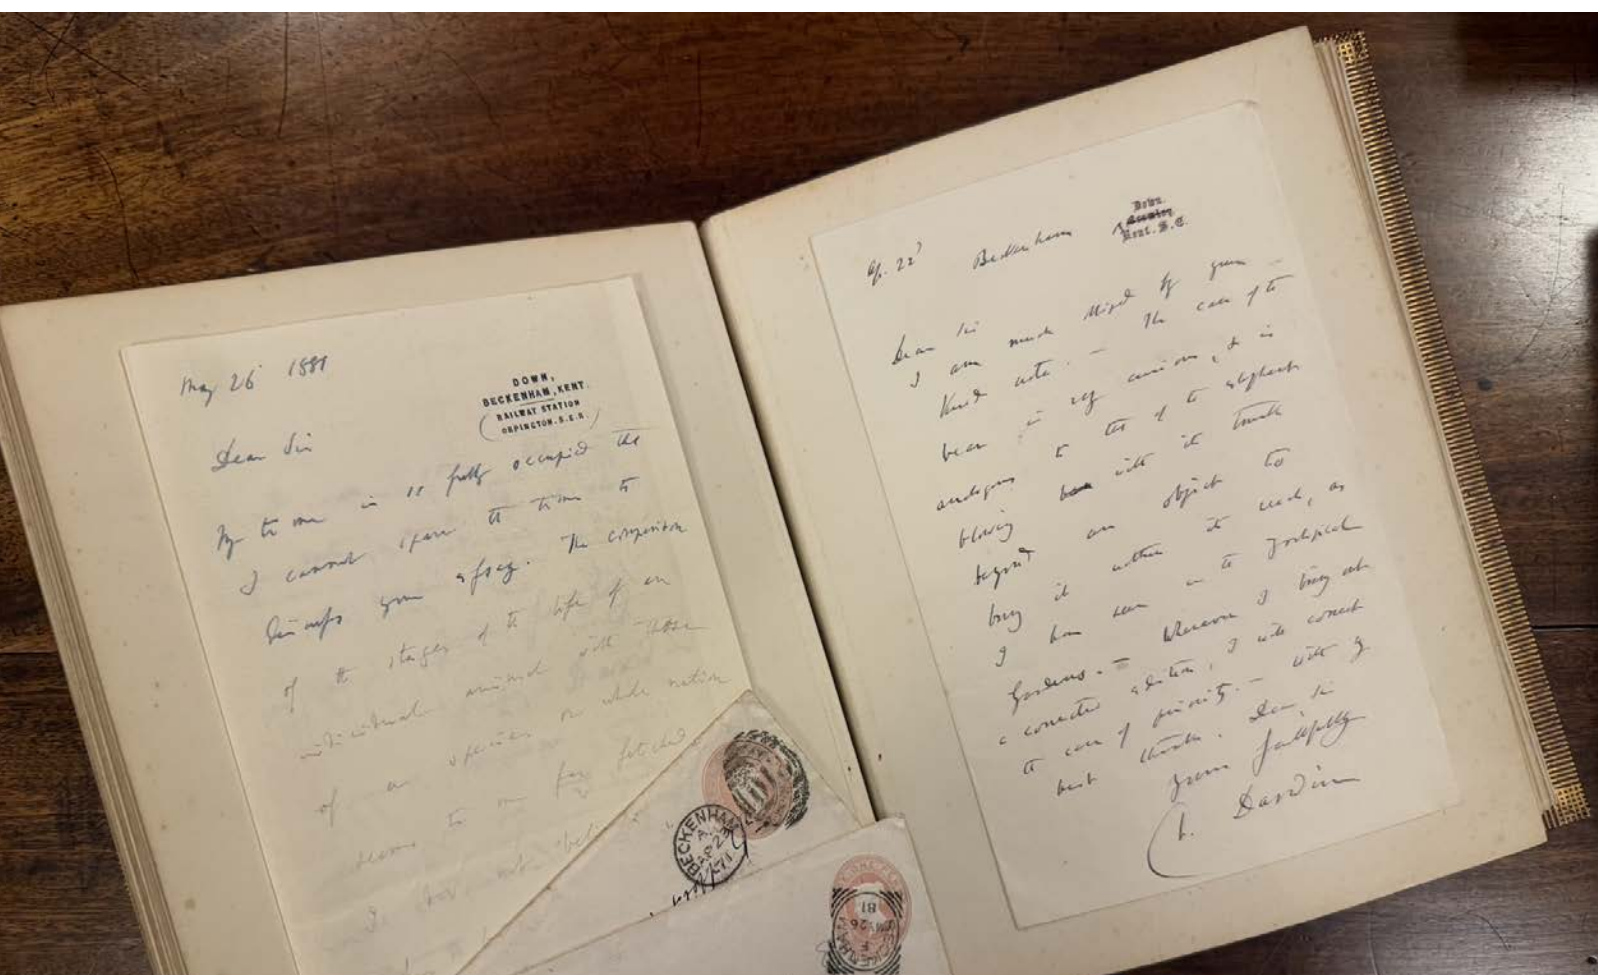 May 26 1881
DOWN,
BECKENHAM, KENT.
(RAILWAY STATION
ORPINGTON. S.E.R.)
Dear Sir
My time is so fully occupied that
I cannot spare the time to
your essay. The comparison
of the stages of the life of an
individual animal with those
of a species or whole nation
seems to me far fetched
I have not
BECKENHAM
AP 23
71
BECKENHAM
MY 26
81
Ap. 22d Beckenham
Down.
Bromley
Kent. S.E.
Dear Sir
I am much obliged by your
kind note. — The case of the
bear is very curious, & is
analogous to that of the elephant
blowing with its trunk
beyond an object to
bring it within its reach, as
I have seen in the Zoological
Gardens. — Whenever I bring out
a corrected edition, I will correct
the case of priority. — With my
best thanks. Dear Sir
yours faithfully
Ch. Darwin